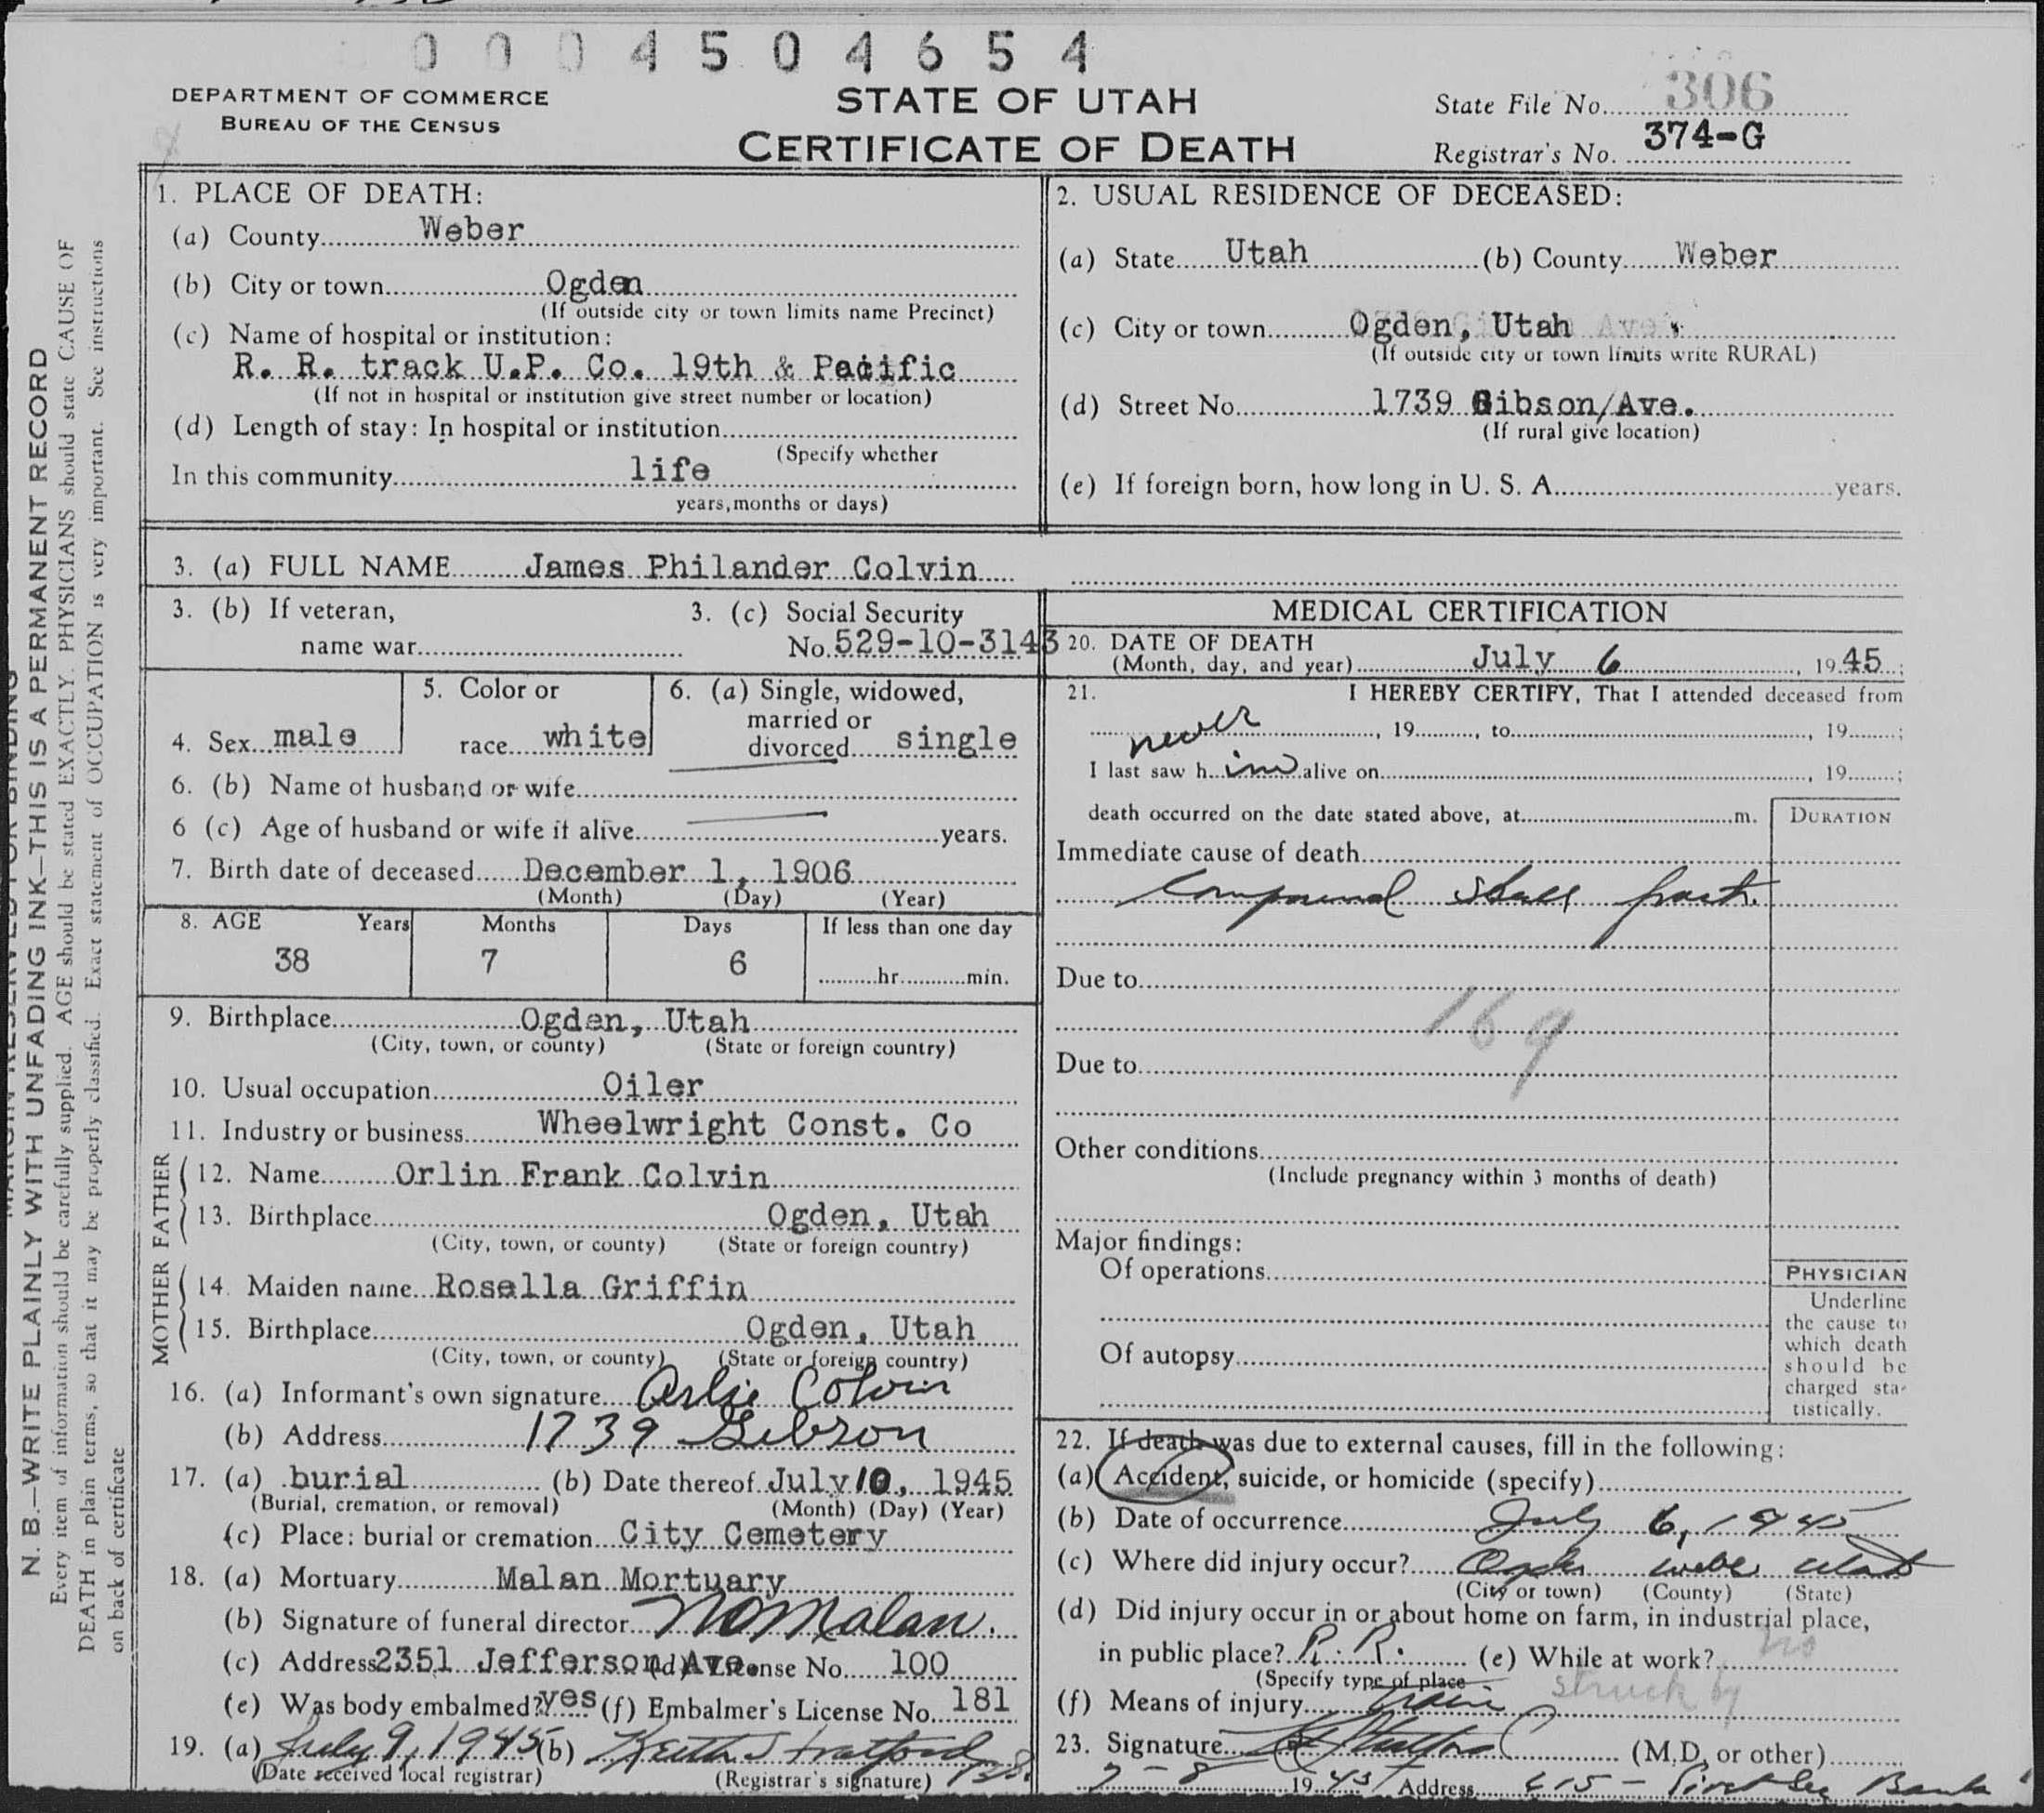 0004504654
DEPARTMENT OF COMMERCE
BUREAU OF THE CENSUS
STATE OF UTAH
CERTIFICATE OF DEATH
State File No. 306
Registrar's No. 374-G
N. B.—WRITE PLAINLY WITH UNFADING INK—THIS IS A PERMANENT RECORD
Every item of information should be carefully supplied. AGE should be stated EXACTLY. PHYSICIANS should state CAUSE OF
DEATH in plain terms, so that it may be properly classified. Exact statement of OCCUPATION is very important. See instructions
on back of certificate
1. PLACE OF DEATH:
(a) County Weber
(b) City or town Ogden
(If outside city or town limits name Precinct)
(c) Name of hospital or institution:
R. R. track U.P. Co. 19th & Pacific
(If not in hospital or institution give street number or location)
(d) Length of stay: In hospital or institution
(Specify whether
In this community life
years, months or days)
2. USUAL RESIDENCE OF DECEASED:
(a) State Utah (b) County Weber
(c) City or town Ogden, Utah
(If outside city or town limits write RURAL)
(d) Street No. 1739 Gibson/Ave.
(If rural give location)
(e) If foreign born, how long in U. S. A. years.
3. (a) FULL NAME James Philander Colvin
3. (b) If veteran,
name war
3. (c) Social Security
No. 529-10-3143
4. Sex male
5. Color or
race white
6. (a) Single, widowed,
married or
divorced single
6. (b) Name of husband or wife
6 (c) Age of husband or wife if alive years.
7. Birth date of deceased December 1, 1906
(Month) (Day) (Year)
8. AGE Years Months Days If less than one day
38 7 6 hr. min.
9. Birthplace Ogden, Utah
(City, town, or county) (State or foreign country)
10. Usual occupation Oiler
11. Industry or business Wheelwright Const. Co
FATHER
12. Name Orlin Frank Colvin
13. Birthplace Ogden, Utah
(City, town, or county) (State or foreign country)
MOTHER
14. Maiden name Rosella Griffin
15. Birthplace Ogden, Utah
(City, town, or county) (State or foreign country)
16. (a) Informant's own signature Orlie Colvin
(b) Address 1739 Gibson
17. (a) burial (b) Date thereof July 10, 1945
(Burial, cremation, or removal) (Month) (Day) (Year)
(c) Place: burial or cremation City Cemetery
18. (a) Mortuary Malan Mortuary
(b) Signature of funeral director Malan.
(c) Address 2351 Jefferson Ave. (d) License No. 100
(e) Was body embalmed? yes (f) Embalmer's License No. 181
19. (a) July 9, 1945 (b) Keith Stratford
(Date received local registrar) (Registrar's signature)
MEDICAL CERTIFICATION
20. DATE OF DEATH
(Month, day, and year) July 6, 1945;
21. I HEREBY CERTIFY, That I attended deceased from
never, 19 , to , 19 ;
I last saw h im alive on , 19 ;
death occurred on the date stated above, at m.
DURATION
Immediate cause of death
Compound skull fract.
Due to
169
Due to
Other conditions
(Include pregnancy within 3 months of death)
Major findings:
Of operations
Of autopsy
PHYSICIAN
Underline
the cause to
which death
should be
charged sta-
tistically.
22. If death was due to external causes, fill in the following:
(a) Accident, suicide, or homicide (specify)
(b) Date of occurrence July 6, 1945
(c) Where did injury occur? Ogden Weber Utah
(City or town) (County) (State)
(d) Did injury occur in or about home on farm, in industrial place,
in public place? R. R. (e) While at work? no
(Specify type of place
struck by
(f) Means of injury train
23. Signature (M.D. or other)
7-8 1945 Address 615 - Bank